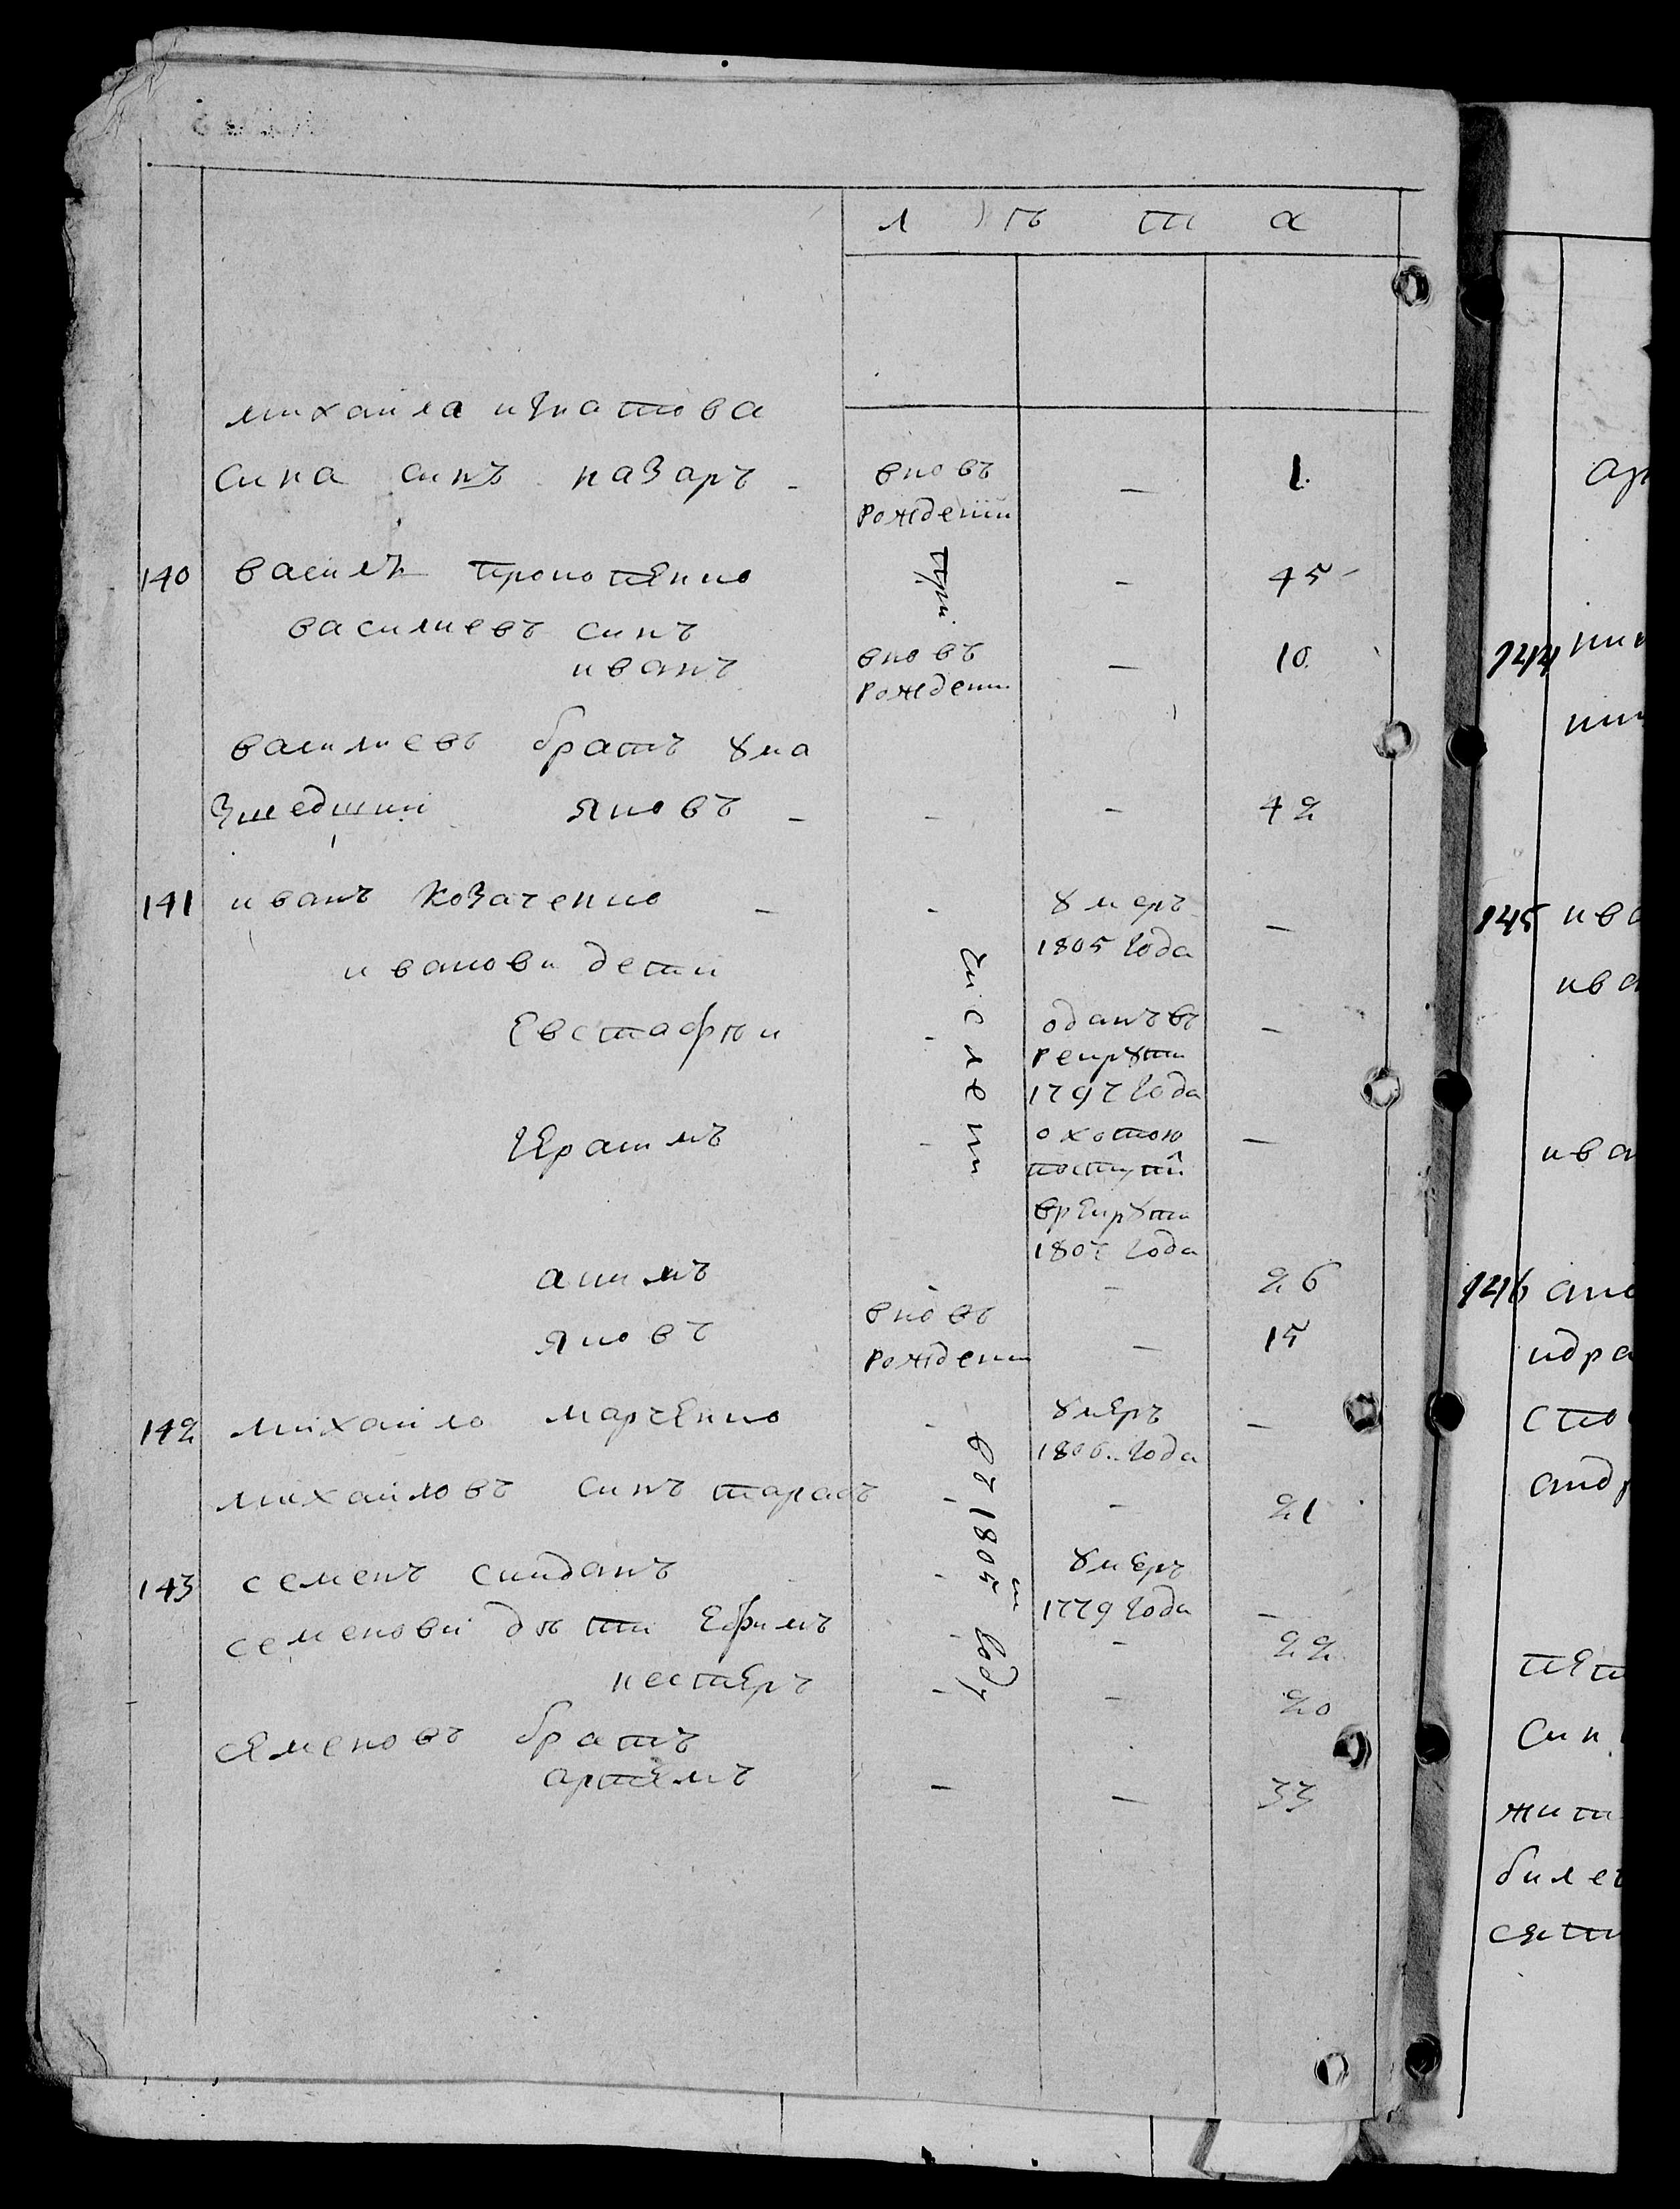 л ѣ т а
михаила игнатова
сина синъ назаръ - вновъ - 1.
рожденiй
140 василь прокопенко при - 45
василиевъ синъ
иванъ вновъ - 10
рождени
василиевъ братъ ума
зшедший яковъ - - - 42
141 иванъ козаченко - - умеръ -
1805 года
иванови дети
Евстафѣи - оданъ въ -
рекрути
1797 года
Герасимъ - охотою -
поступи
врекрути
1807 года
акимъ - - 26
яковъ вновъ - 15
рождени
142 михайло марченко - умеръ -
1806. года
михайловъ синъ тарасъ - - 21
143 семенъ скиданъ - умеръ
1779 года -
семенови дѣти Ефимъ - - 22
нестеръ - - 20
семеновъ братъ
артемъ - - 33
числени
въ 1805м году
144
145 ива
ива
ива
146
идра
сто
андр
пет
син
жит
билет